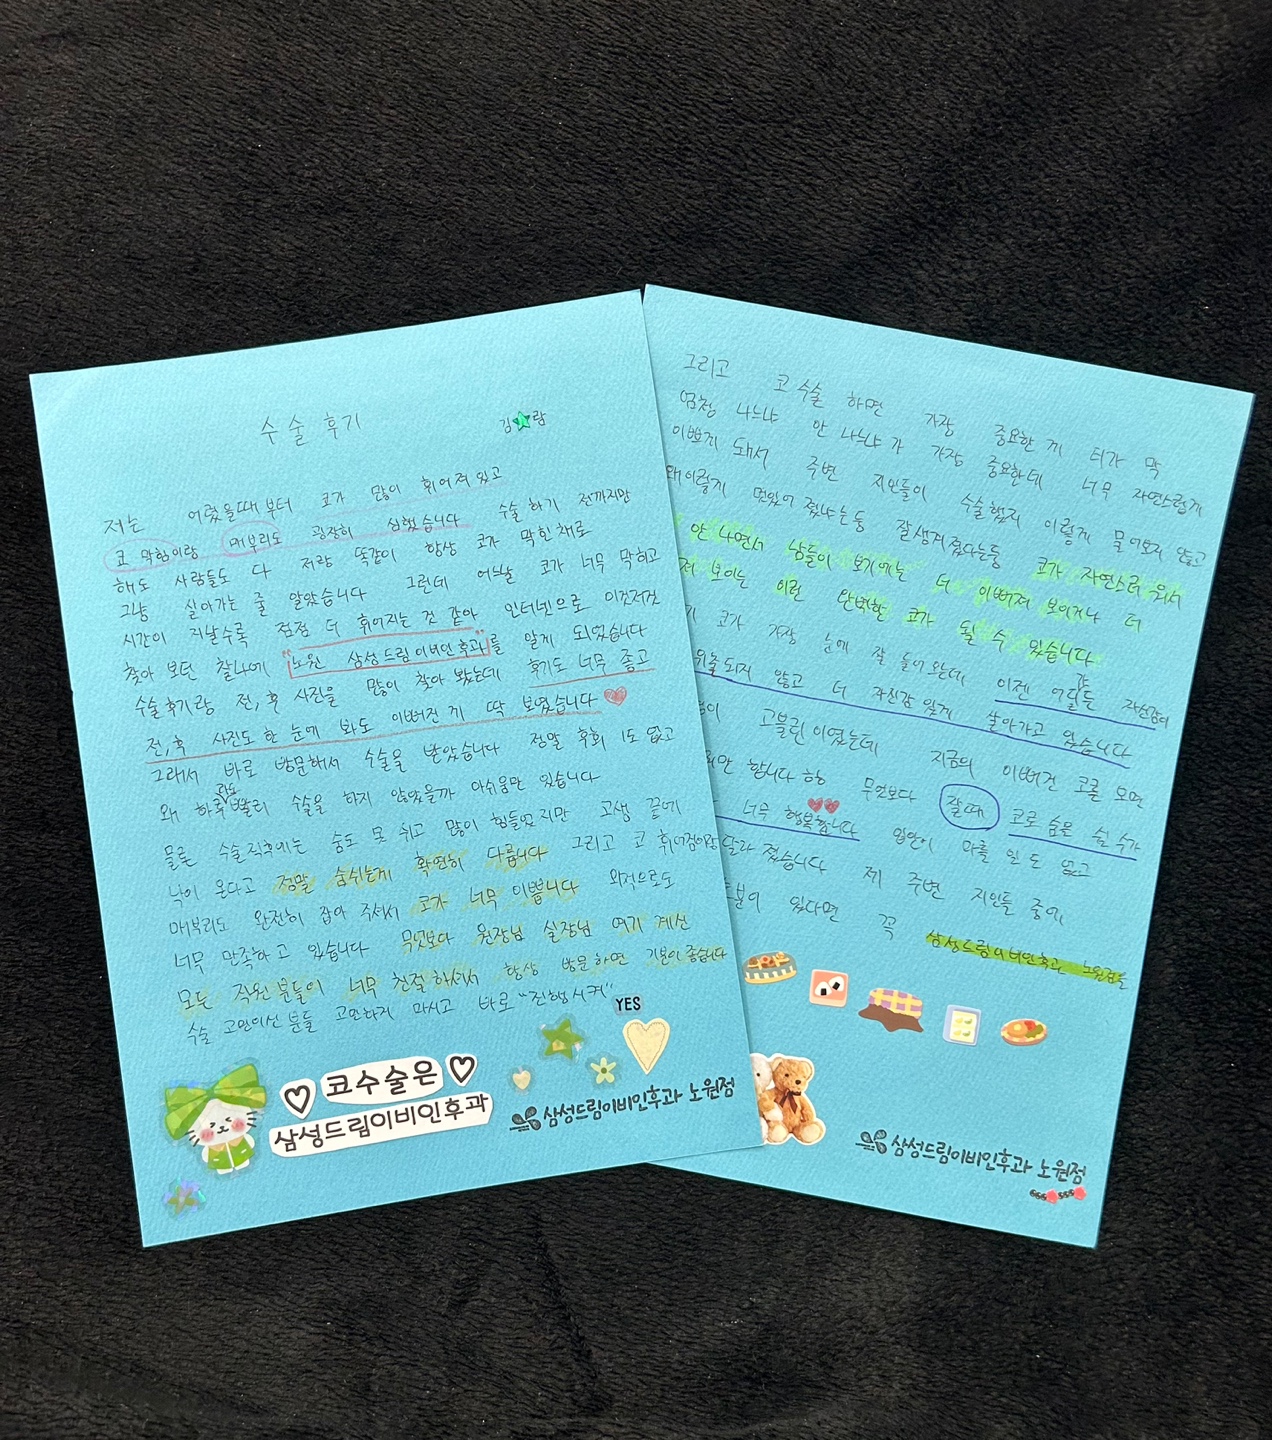 수술후기
김 람
저는 어렸을때부터 코가 많이 휘어져 있고
코 막힘이랑 매부리도 굉장히 심했습니다 수술 하기 전까지만
해도 사람들도 다 저랑 똑같이 항상 코가 막힌채로
그냥 살아가는 줄 알았습니다 그런데 어느날 코가 너무 막히고
시간이 지날수록 점점 더 휘어지는 것 같아 인터넷으로 이것저것
찾아 보던 찰나에 "노원 삼성드림이비인후과"를 알게 되었습니다
수술후기랑 전,후 사진을 많이 찾아 봤는데 후기도 너무 좋고
전,후 사진도 한 눈에 봐도 이뻐진게 딱 보였습니다
그래서 바로 방문해서 수술을 받았습니다 정말 후회 1도 없고
왜 하루라도 빨리 수술을 하지 않았을까 아쉬움만 있습니다
물론 수술직후에는 숨도 못 쉬고 많이 힘들었지만 고생 끝에
낙이 온다고 정말 숨쉬는게 확연히 다릅니다 그리고 코 휘어짐이랑
매부리도 완전히 잡아 주셔서 코가 너무 이쁩니다 외적으로도
너무 만족하고 있습니다 무엇보다 원장님 실장님 여기 계신
모든 직원분들이 너무 친절하셔서 항상 방문하면 기분이 좋습니다
수술 고민이신 분들 고민하지 마시고 바로 "진행시켜"
YES
코수술은
삼성드림이비인후과
삼성드림이비인후과 노원점
그리고 코수술 하면 가장 중요한게 티가 막
엄청 나느냐 안 나느냐가 가장 중요한데 너무 자연스럽게
이쁘게 돼서 주변 지인들이 수술했지 이렇게 물어보지 않고
왜이렇게 멋있어졌냐는둥 잘생겨졌다는둥 코가 자연스러워서
안 나면서 남들이 보기에는 더 이뻐져 보이거나 더
보이는 이런 완벽한 코가 될 수 있습니다
코가 가장 눈에 잘 들어왔는데 이젠 어딜가든 자신감이
않고 더 자신감 있게 살아가고 있습니다
고블린이였는데 지금의 이뻐진 코를 보면
합니다 하하 무엇보다 잘때 코로 숨을 쉴 수가
너무 행복합니다 입안이 마를 일도 없고
달라졌습니다 제 주변 지인들 중에
있다면 꼭 삼성드림이비인후과 노원점을
삼성드림이비인후과 노원점